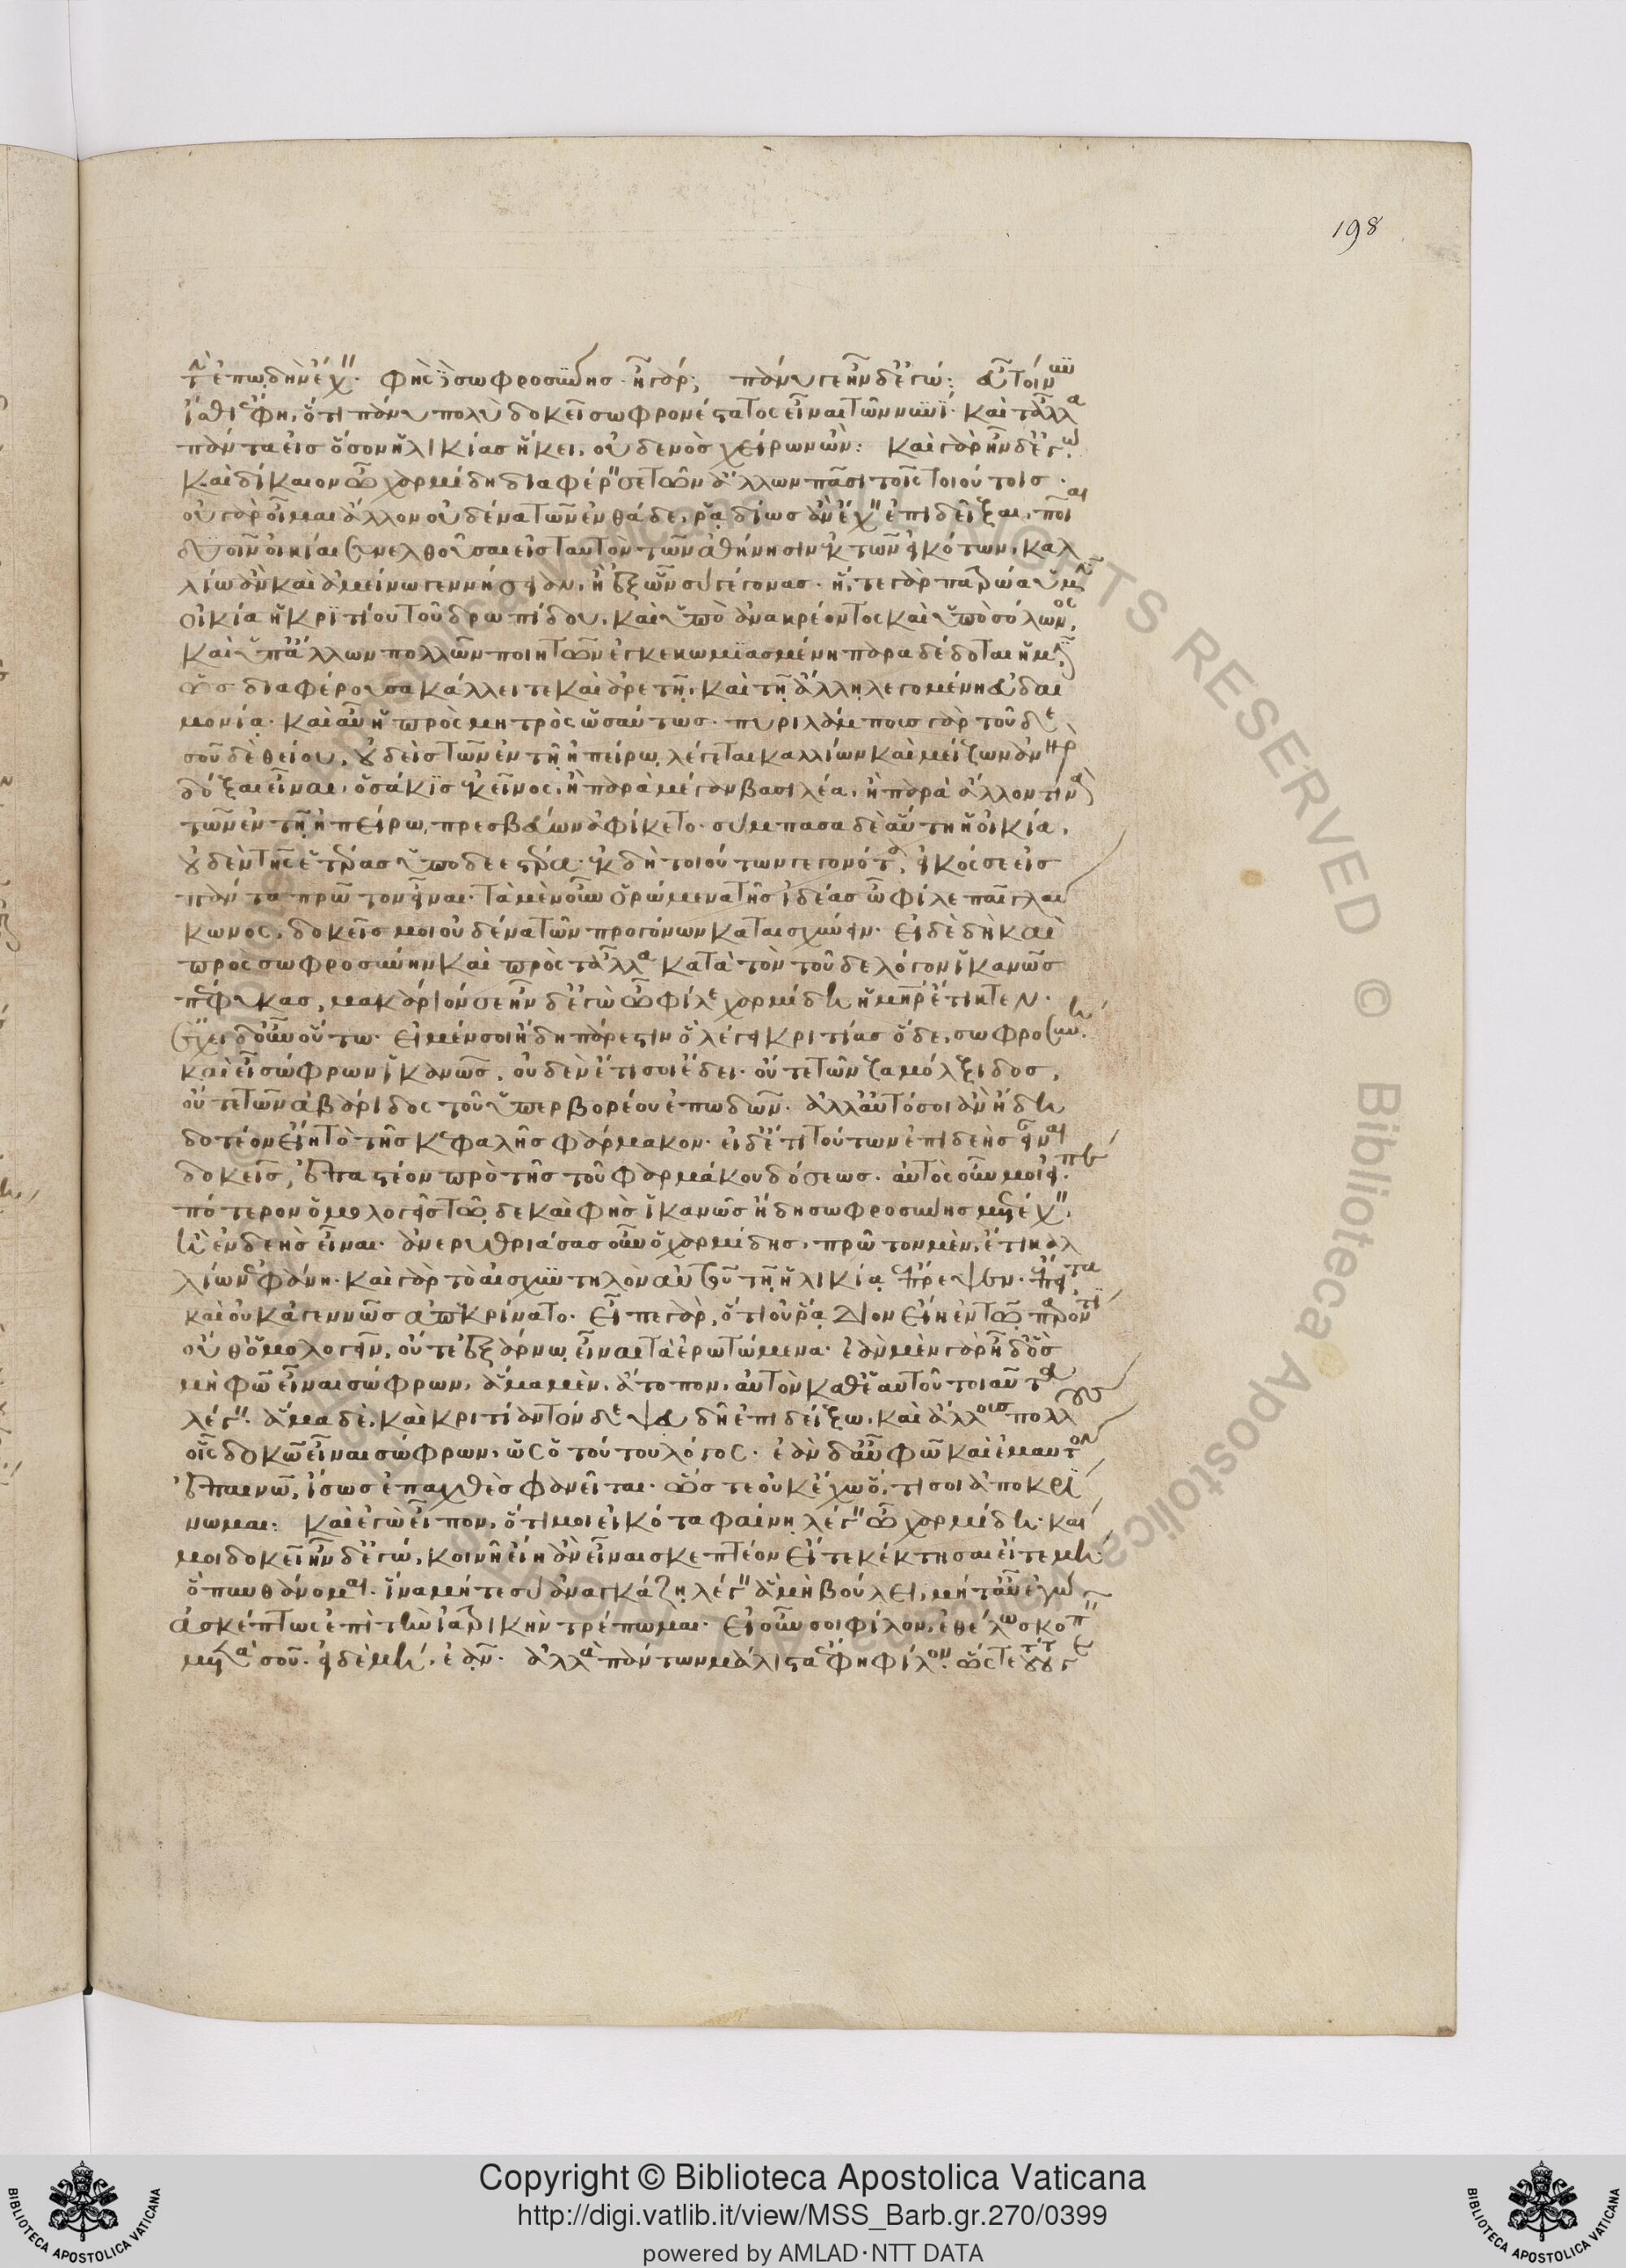 198
τὴν ἐπωιδὴν ἔχειν. φὴς σωφροσύνης. ἦ γάρ; πάνυ γε ἦν δ' ἐγώ: εὖ τοίνυν
ἴσθι ἔφη, ὅτι πάνυ πολὺ δοκεῖ σωφρονέστατος εἶναι τῶν νυνί. καὶ τἆλλα
πάντα εἰς ὅσον ἡλικίας ἥκει, οὐδενὸς χείρων ὤν: καὶ γὰρ ἦν δ' ἐγώ
καὶ δίκαιον ὦ χαρμίδη διαφέρειν σε τῶν ἄλλων πᾶσι τοῖς τοιούτοις.
οὐ γὰρ οἶμαι ἄλλον οὐδένα τῶν ἐνθάδε, ῥαιδίως ἂν ἔχειν ἐπιδεῖξαι, ποῖαι
δυοῖν οἰκίαι συνελθοῦσαι εἰς ταυτὸν τῶν ἀθήνησιν ἐκ τῶν εἰκότων, καλ
λίω ἂν καὶ ἀμείνω γεννήσειαν, ἢ ἐξ ὧν σὺ γέγονας. ἥ, τε γὰρ πατρώα ὑμῖν
οἰκία ἡ κριτίου τοῦ δρωπίδου, καὶ ὑπὸ ἀνακρέοντος καὶ ὑπὸ σόλωνος,
καὶ ὑπ' ἄλλων πολλῶν ποιητῶν ἐγκεκωμιασμένη παραδέδοται ἡμῖν
ὡς διαφέρουσα κάλλει τε καὶ ἀρετῆι, καὶ τῆι ἄλληι λεγομένηι εὐδαι
μονίαι. καὶ αὖ ἡ πρὸς μητρὸς ὡσαύτως. πυριλάμπους γὰρ τοῦ δε
σοῦ δὲ θείου, οὐδεὶς τῶν ἐν τῆι ἠπείρωι λέγεται καλλίων καὶ μείζων ἀνὴρ
δόξαι εἶναι, ὁσάκις ἐκεῖνος, ἢ παρὰ μέγαν βασιλέα, ἢ παρὰ ἄλλον τινὰ
τῶν ἐν τῆι ἠπείρωι πρεσβεύων ἀφίκετο. σύμπασα δὲ αὕτη ἡ οἰκία,
οὐδὲν τῆς ἑτέρας ὑποδεεστέρα. ἐκ δὴ τοιούτων γεγονότα, εἰκός σε εἰς
πάντα πρῶτον εἶναι. τὰ μὲν οὖν ὁρώμενα τῆς ἰδέας ὦ φίλε παῖ γλαύ
κωνος, δοκεῖς μοι οὐδένα τῶν προγόνων καταισχύνειν. εἰ δὲ δὴ καὶ
πρὸς σωφροσύνην καὶ πρὸς τἆλλα κατὰ τὸν τοῦδε λόγον ἱκανῶς
πέφυκας, μακάριόν σε ἦν δ' ἐγὼ ὦ φίλε χαρμίδη ἡ μήτηρ ἔτικτεν.
ἔχει δ' οὖν οὕτω. εἰ μέν σοι ἤδη πάρεστιν ὃ λέγει κριτίας ὅδε, σωφροσύνη.
καὶ εἶ σώφρων ἱκανῶς, οὐδὲν ἔτι σοι ἔδει. οὔτε τῶν ζαμόλξιδος,
οὔτε τῶν ἀβάριδος τοῦ ὑπερβορέου ἐπωδῶν. ἀλλ' αὐτό σοι ἂν ἤδη
δοτέον εἴη τὸ τῆς κεφαλῆς φάρμακον. εἰ δ' ἔτι τούτων ἐπιδεὴς εἶναι
δοκεῖς, ἐπαστέον πρὸ τῆς τοῦ φαρμάκου δόσεως. αὐτὸς οὖν μοι εἰπὲ.
πότερον ὁμολογεῖς τῶιδε καὶ φὴς ἱκανῶς ἤδη σωφροσύνης μετέχειν.
ἢ ἐνδεὴς εἶναι. ἀνερυθριάσας οὖν ὁ χαρμίδης, πρῶτον μὲν, ἔτι καλ
λίων ἐφάνη. καὶ γὰρ τὸ αἰσχυντηλὸν αὐτοῦ τῆι ἡλικίαι ἔπρεψεν. ἔπειτα
καὶ οὐκ ἀγεννῶς ἀπεκρίνατο. εἶπε γὰρ, ὅτι οὐ ῥάιδιον εἴη ἐν τῶι παρόντι
οὔθ' ὁμολογεῖν, οὔτε ἐξάρνωι εἶναι τὰ ἐρωτώμενα. ἐὰν μὲν γὰρ ἦ δ' ὃς
μὴ φῶ εἶναι σώφρων, ἅμα μὲν, ἄτοπον, αὐτὸν καθ' ἑαυτοῦ τοιαῦτα
λέγειν. ἅμα δὲ, καὶ κριτίαν τόνδε ψευδῆ ἐπιδείξω. καὶ ἄλλους πολλοὺς
οἷς δοκῶ εἶναι σώφρων, ὡς ὁ τούτου λόγος. ἐὰν δ' αὖ φῶ καὶ ἐμαυτὸν
ἐπαινῶ, ἴσως ἐπαχθὲς φανεῖται. ὥστε οὐκ ἔχω ὅ, τι σοι ἀποκρί
νωμαι: καὶ ἐγὼ εἶπον, ὅτι μοι εἰκότα φαίνηι λέγειν ὦ χαρμίδη. καί
μοι δοκεῖ ἦν δ' ἐγώ, κοινῆι εἴη ἂν εἶναι σκεπτέον εἴτε κέκτησαι εἴτε μὴ
ὃ πυνθάνομαι. ἵνα μήτε σὺ ἀναγκάζηι λέγειν ἃ μὴ βούλει, μήτ' αὖ ἐγὼ
ἀσκέπτως ἐπὶ τὴν ἰατρικὴν τρέπωμαι. εἰ οὖν σοι φίλον, ἐθέλω σκοπεῖν
μετὰ σοῦ. εἰ δὲ μὴ, ἐᾶν. ἀλλὰ πάντων μάλιστα ἔφη φίλον. ὥστε τούτου γε
Copyright © Biblioteca Apostolica Vaticana
http://digi.vatlib.it/view/MSS_Barb.gr.270/0399
powered by AMLAD·NTT DATA